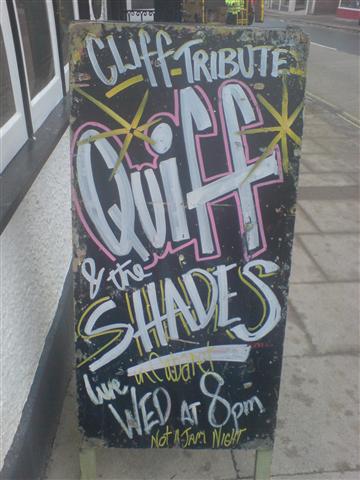 Cliff TRIBUTE
QUIFF
& the
SHADES
live
WED AT 8pm
NOT A JAM NIGHT